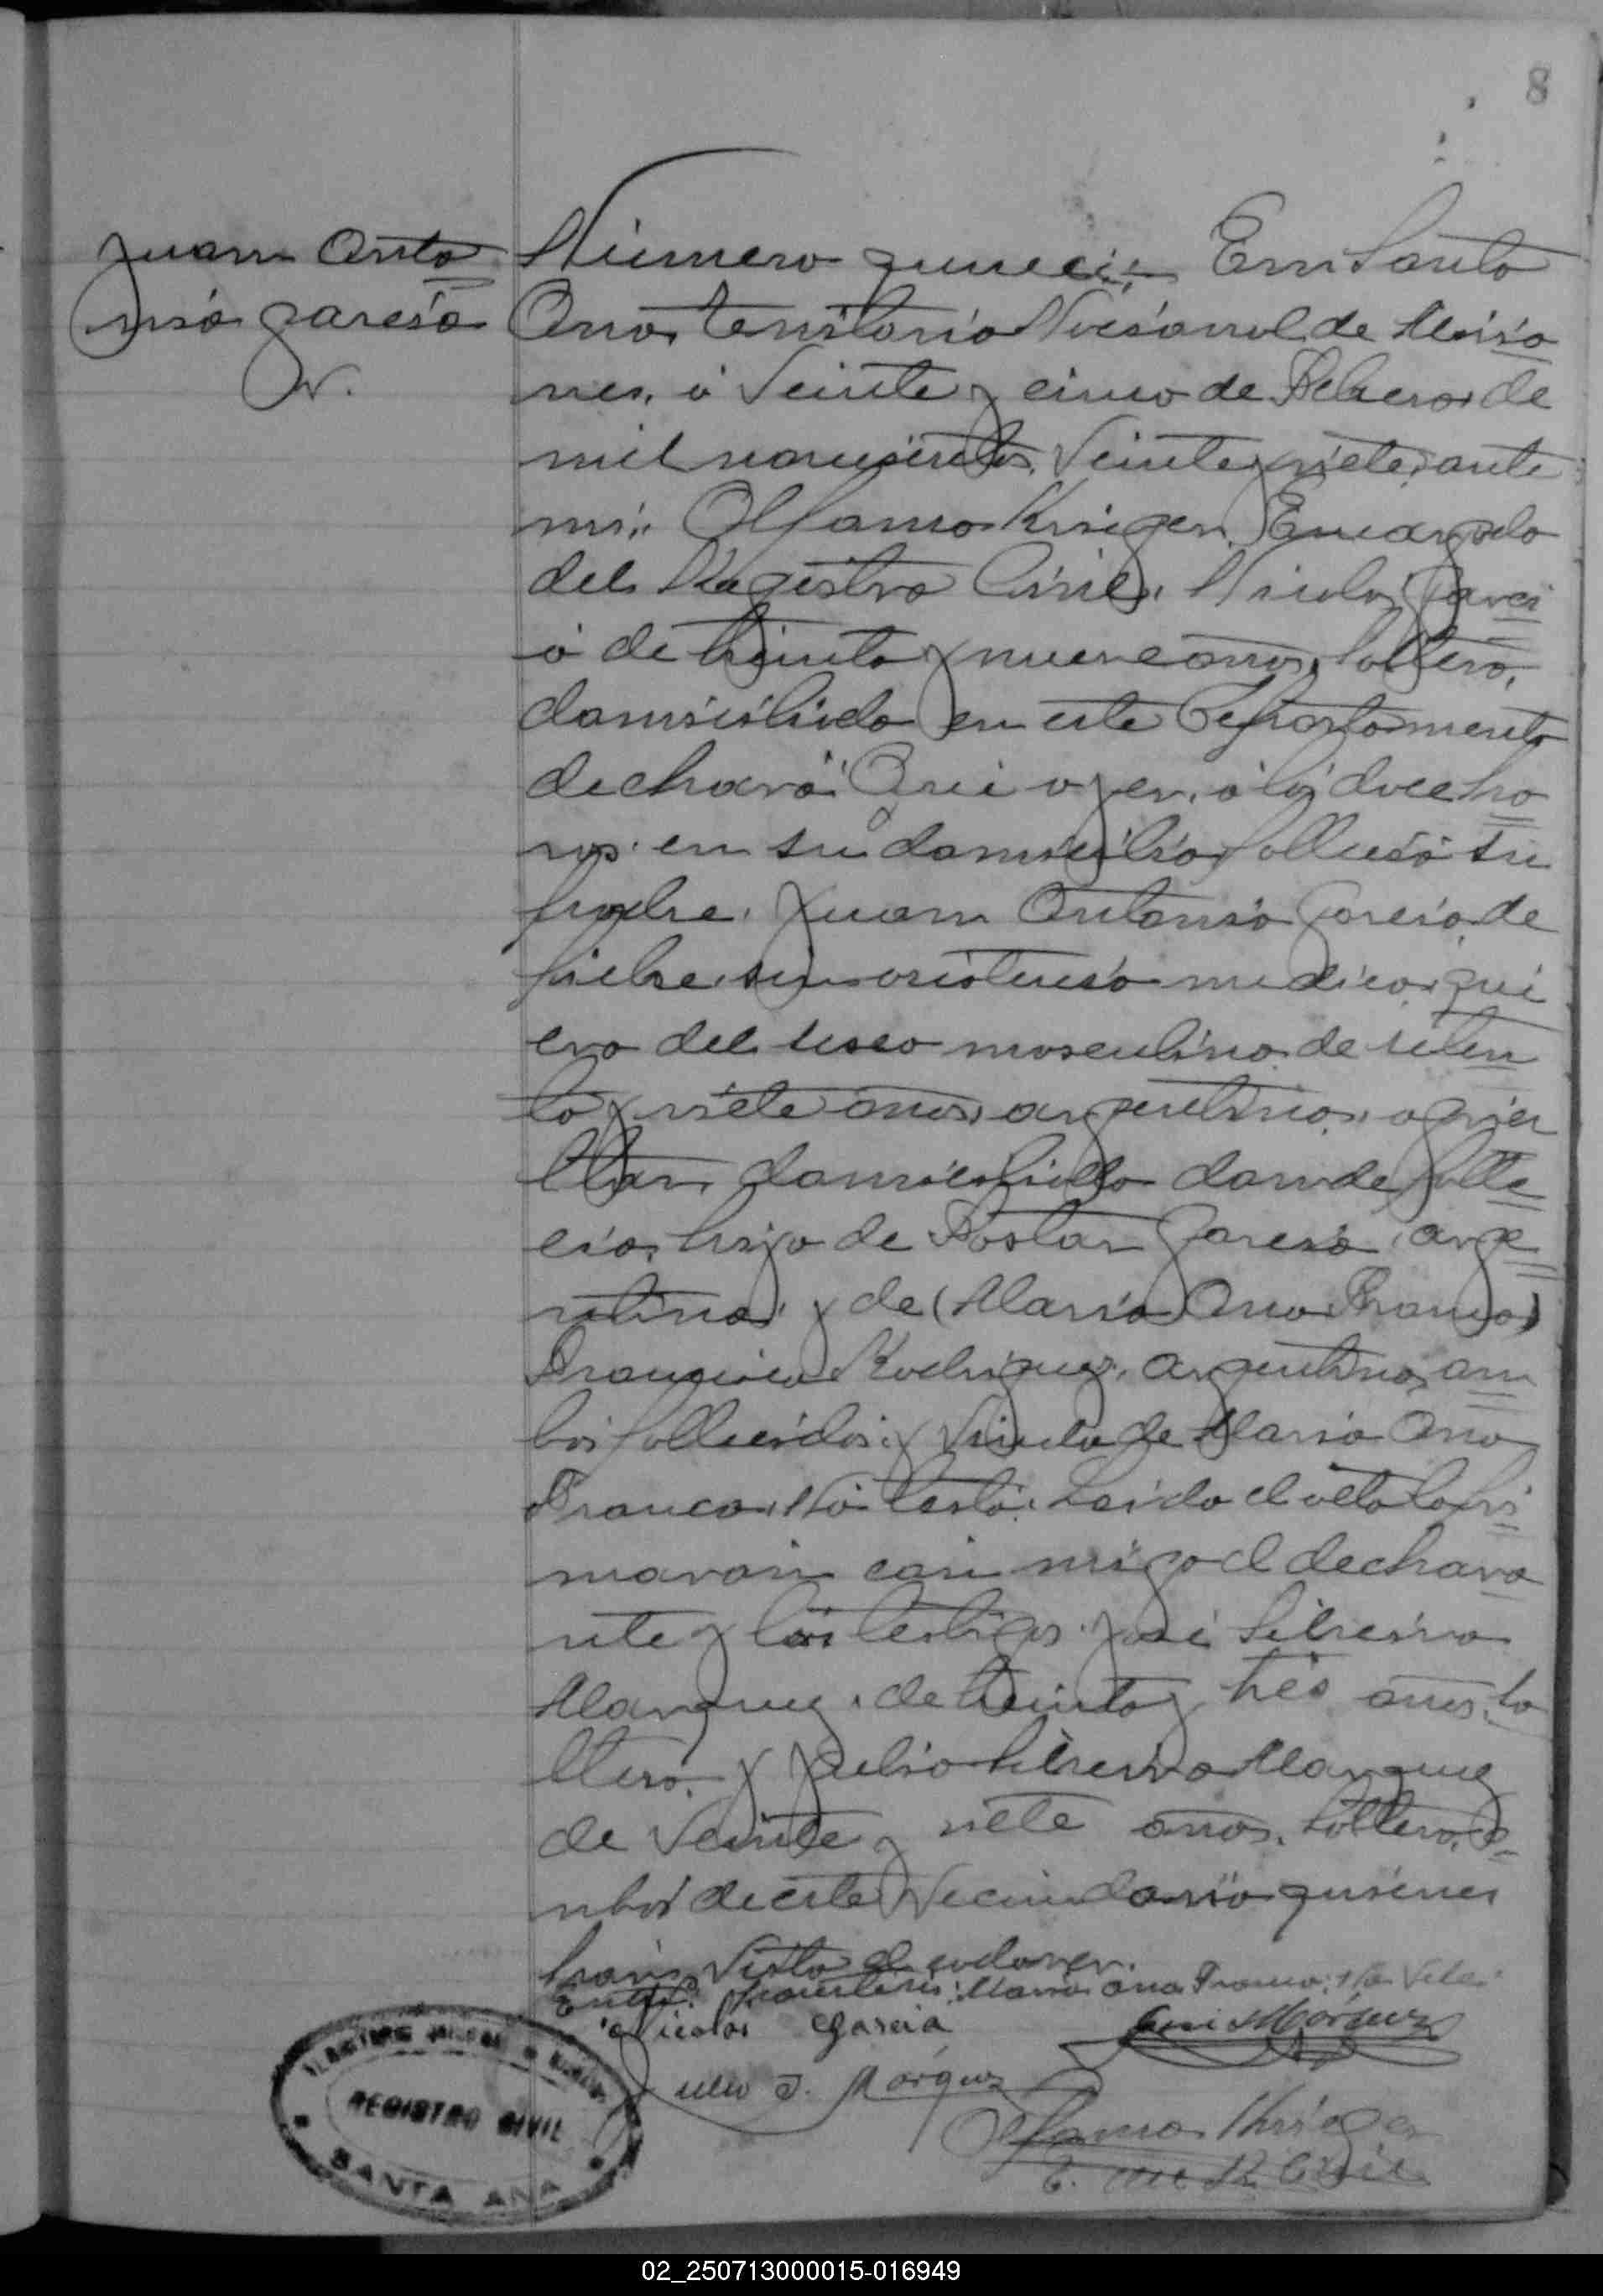 8
Juan Anto
nio Garcia
V.
Número quince: En Santa
Ana, territorio Nacional de Misio
nes, á Veinte y cinco de Febrero de
mil novecientos Veinte y siete, ante
mi: Alfonso Krieger, Encargado
del Registro Civil, Nicolas Garci
a de treinta y nueve años, soltero,
domiciliado en este Departamento
declaró: Que ayer, á las doce ho
ras en su domicilio falleció su
padre, Juan Antonio Garcia, de
fiebre, sin asistencia medica, que
era del sexo masculino, de seten
ta y siete años, argentino, agricu
ltor, domiciliado donde falle
cio, hijo de Garcia, arge
ntino, y de (Maria Ana Franco)
Francisca Rodriguez, argentina, am
bos fallecidos, y Viudo de Maria Ana
Franco, No testó. Leida el acta la fir
maron con migo el declara
nte y los testigos José Silveira
Marquez, de treinta y tres años, so
ltero, y Julio Silveira Marquez
de Veinte y siete años, soltero, a
mbos de este Vecindario quienes
han Visto el cadaver.
Entre parentesis: Maria Ana Franco: No Vale:
Nicolas Garcia
José Márquez
Julio S. Márquez
Alfonso Krieger
E. del R. Civil
REGISTRO CIVIL
SANTA ANA
02_250713000015-016949